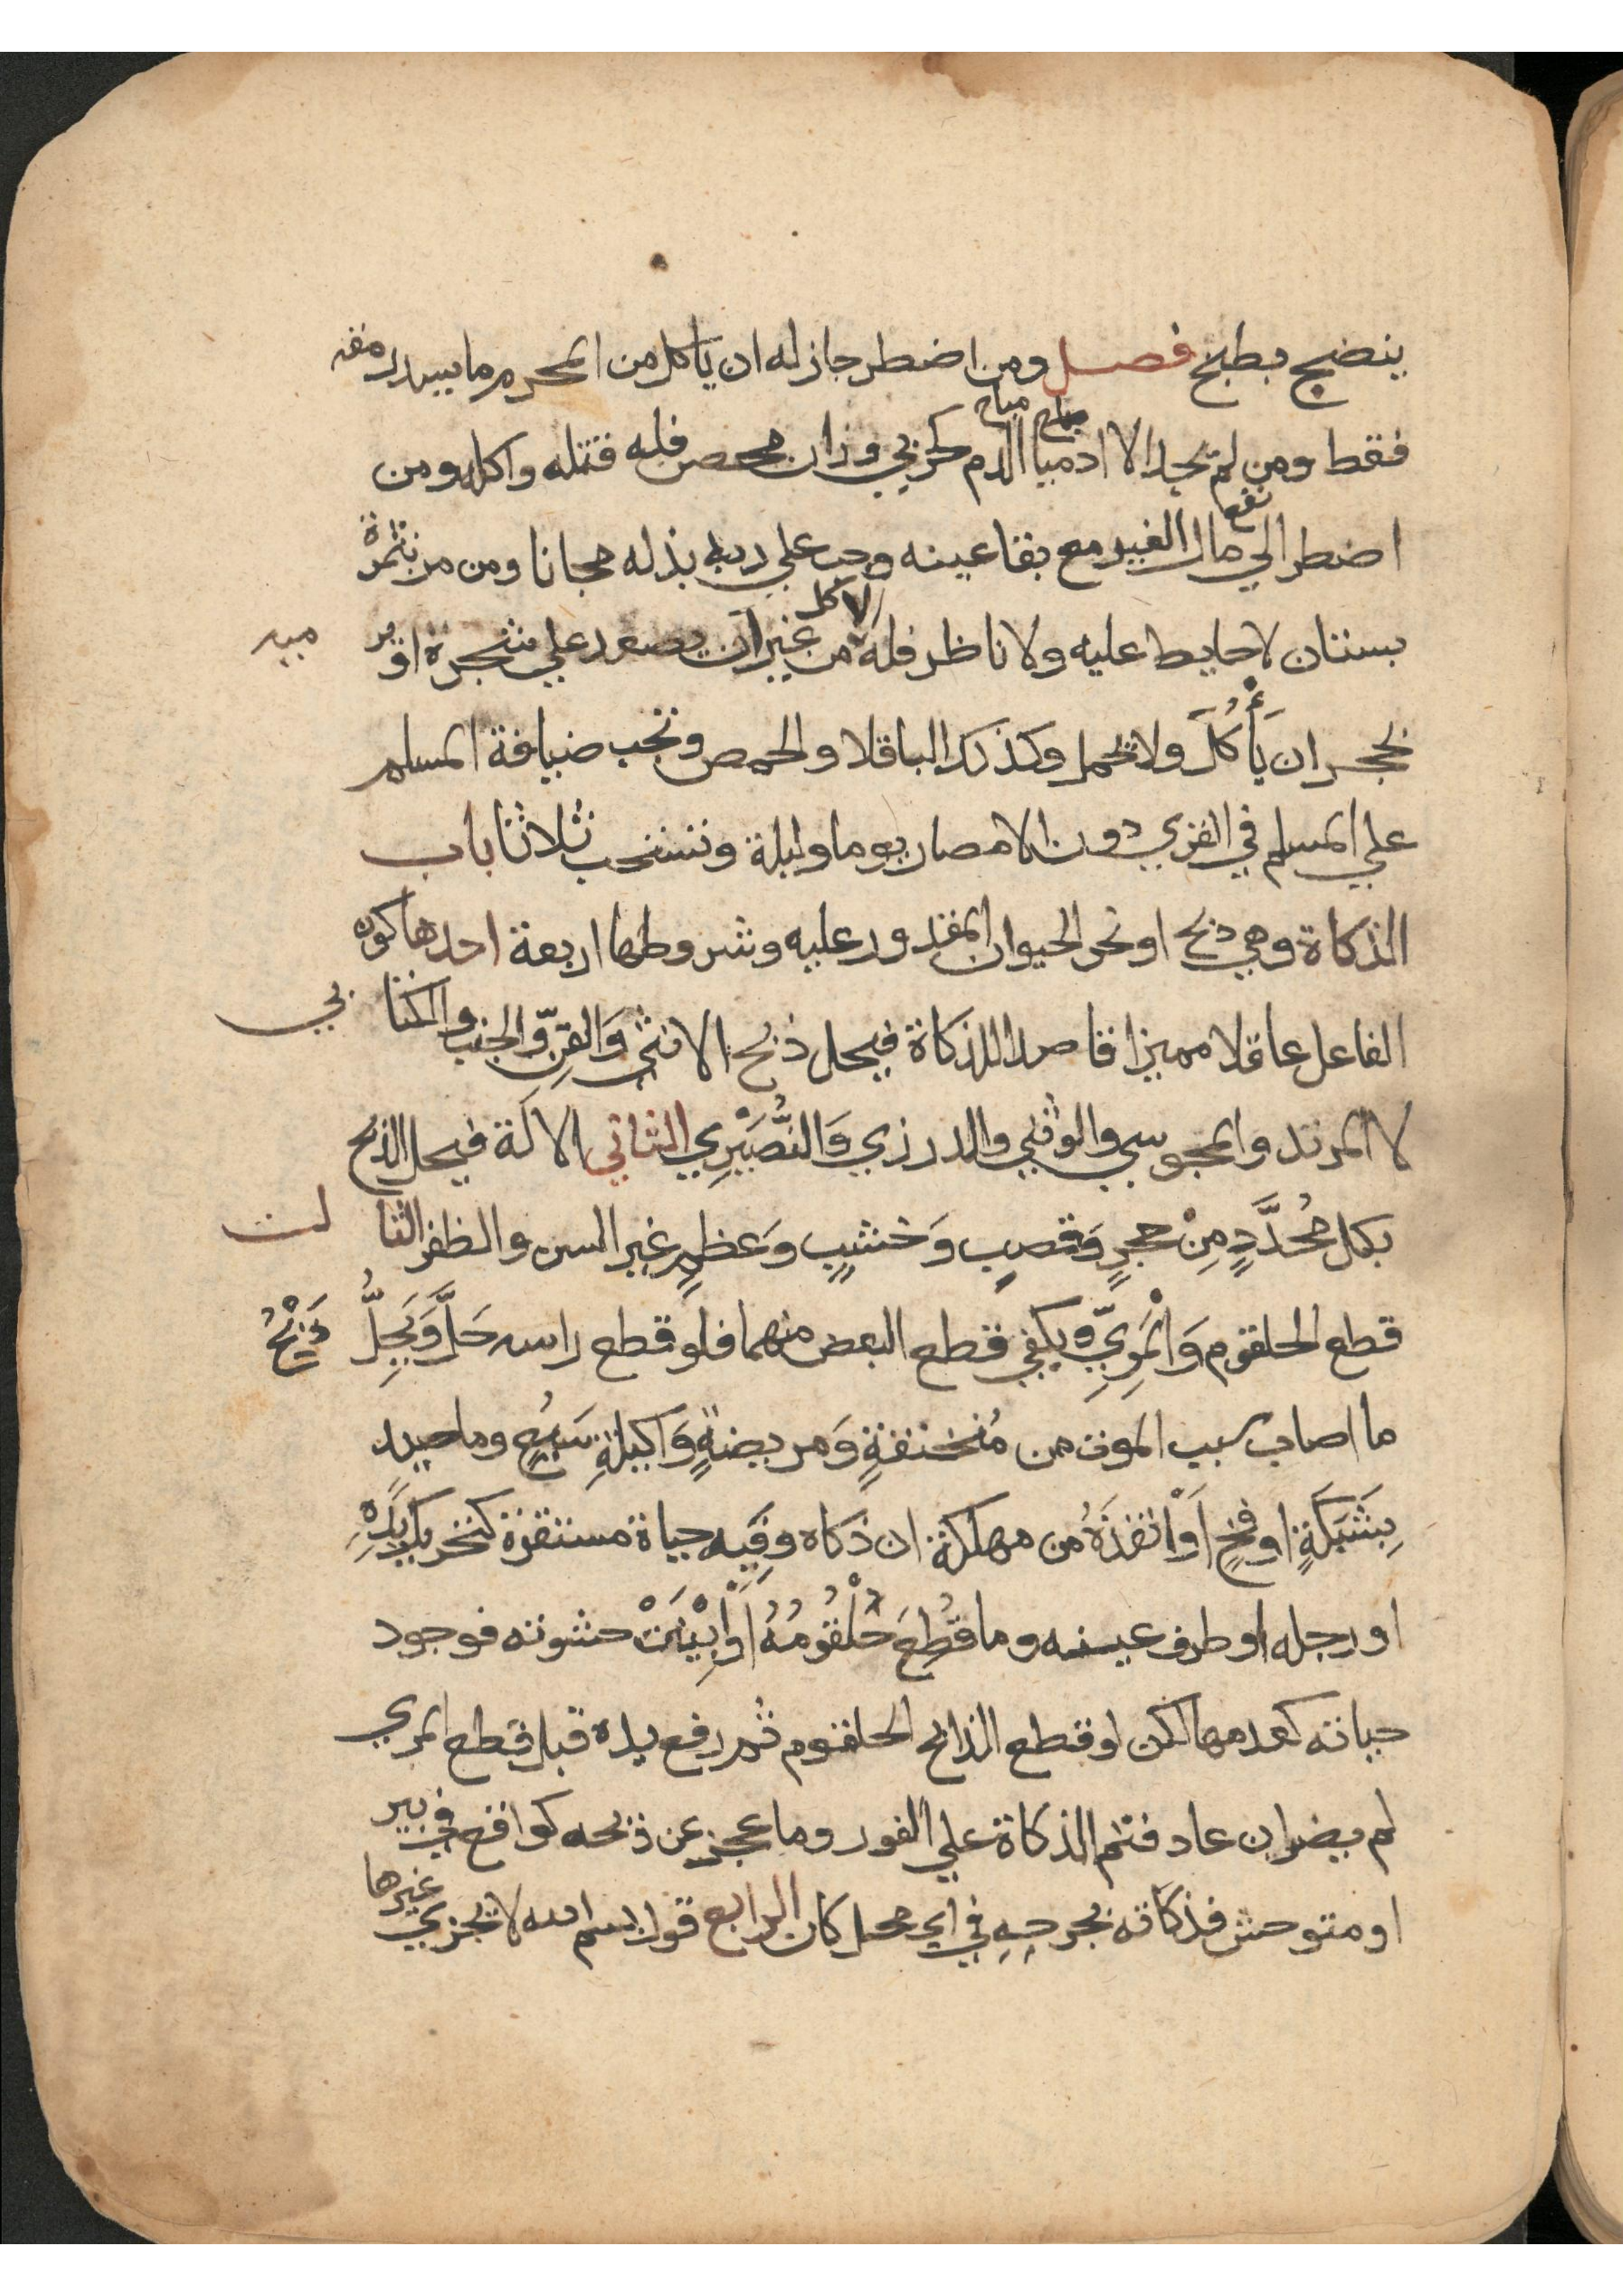 ينضج بطبخ فصل ومن اضطر جاز له ان ياكل من المحرم ما يسد رمقه
فقط ومن لم يجد الا ادميا مباح الدم كحربي وزان محصن فله قتله واكله ومن
اضطر الي نفع مال الغير مع بقا عينه وجب علي ربه بذله مجانا ومن مر بثمرة
بستان لا حايط عليه ولا ناظر فله الاكل من غير ان يصعد علي شجرة او يرميه
بحجر ان يَأْكُلَ ولا يحمل وكذلك الباقلا والحمص وتجب ضيافة المسلم
علي المسلم في القري دون الامصار يوما وليلة وتستحب ثلاثا باب
الذكاة وهي ذبح او نحر الحيوان المقدور عليه وشروطها اربعة احدها كون
الفاعل عاقلا مميزا قاصدا للذكاة فيحل ذبح الانثي وَالقِنِّ والجنب والكتابي
لا المرتد والمجوسي والوثني والدرزي وَالنُّصَيْرِي الثاني الالة فيحل الذبح
بكل مُحَدَّدٍ مِنْ حجرٍ وَقصبٍ وَخشبٍ وَعَظمٍ غير السن والظفر الثالث
قطع الحلقوم وَالْمَرِيِّ ويكفي قطع البعض منهما فلو قطع راسه حَلَّ وَيَحِلُّ ذَبْحُ
ما اصاب سبب الموت من مُنخنقةٍ وَمريضةٍ وَاكيلةِ سَبُعٍ وما صيد
بِشَبَكَةٍ او فخٍ اَوْ انقذَهُ من مهلكة ان ذكاه وفِيه حياة مستقرة كتحريك يَدِهِ
او رجله او طرف عينه وما قُطِعَ حُلْقُومُهُ اَوْ اُبِيْنَتْ حشوته فوجود
حياته كعدمها لكن لو قطع الذابح الحلقوم ثم رفع يده قبل قطع المري
لم يضر ان عاد فتمم الذكاة علي الفور وما عجز عن ذبحه كواقع في بير
او متوحش فذكاته بجرحِهِ في اي محل كان الرابع قول بسم الله لا يجزي غيرها